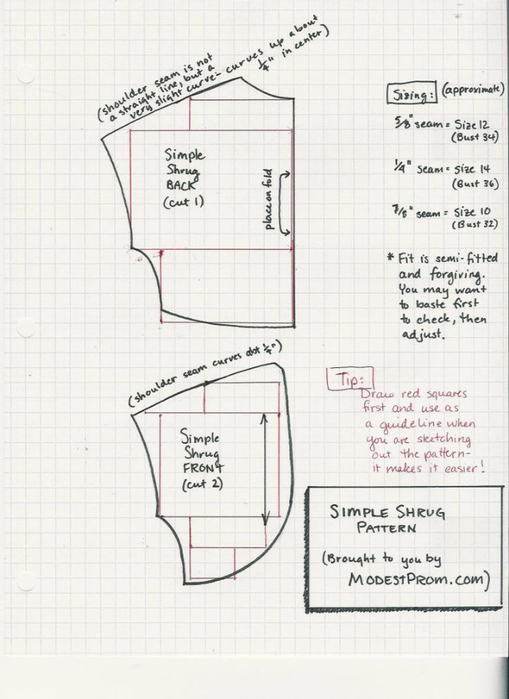 (shoulder seam is not
a straight line, but a
very slight curve- curves up about
1/4" in center)
Simple
Shrug
BACK
(cut 1)
place on fold
Sizing: (approximate)
5/8" seam = Size 12
(Bust 34)
1/4" seam = Size 14
(Bust 36)
7/8" seam = Size 10
(Bust 32)
* Fit is semi-fitted
and forgiving.
You may want
to baste first
to check, then
adjust.
(shoulder seam curves abt 1/4")
Simple
Shrug
FRONT
(cut 2)
Tip:
Draw red squares
first and use as
a guideline when
you are sketching
out the pattern-
it makes it easier!
SIMPLE SHRUG
PATTERN
(Brought to you by
MODESTPROM.COM)